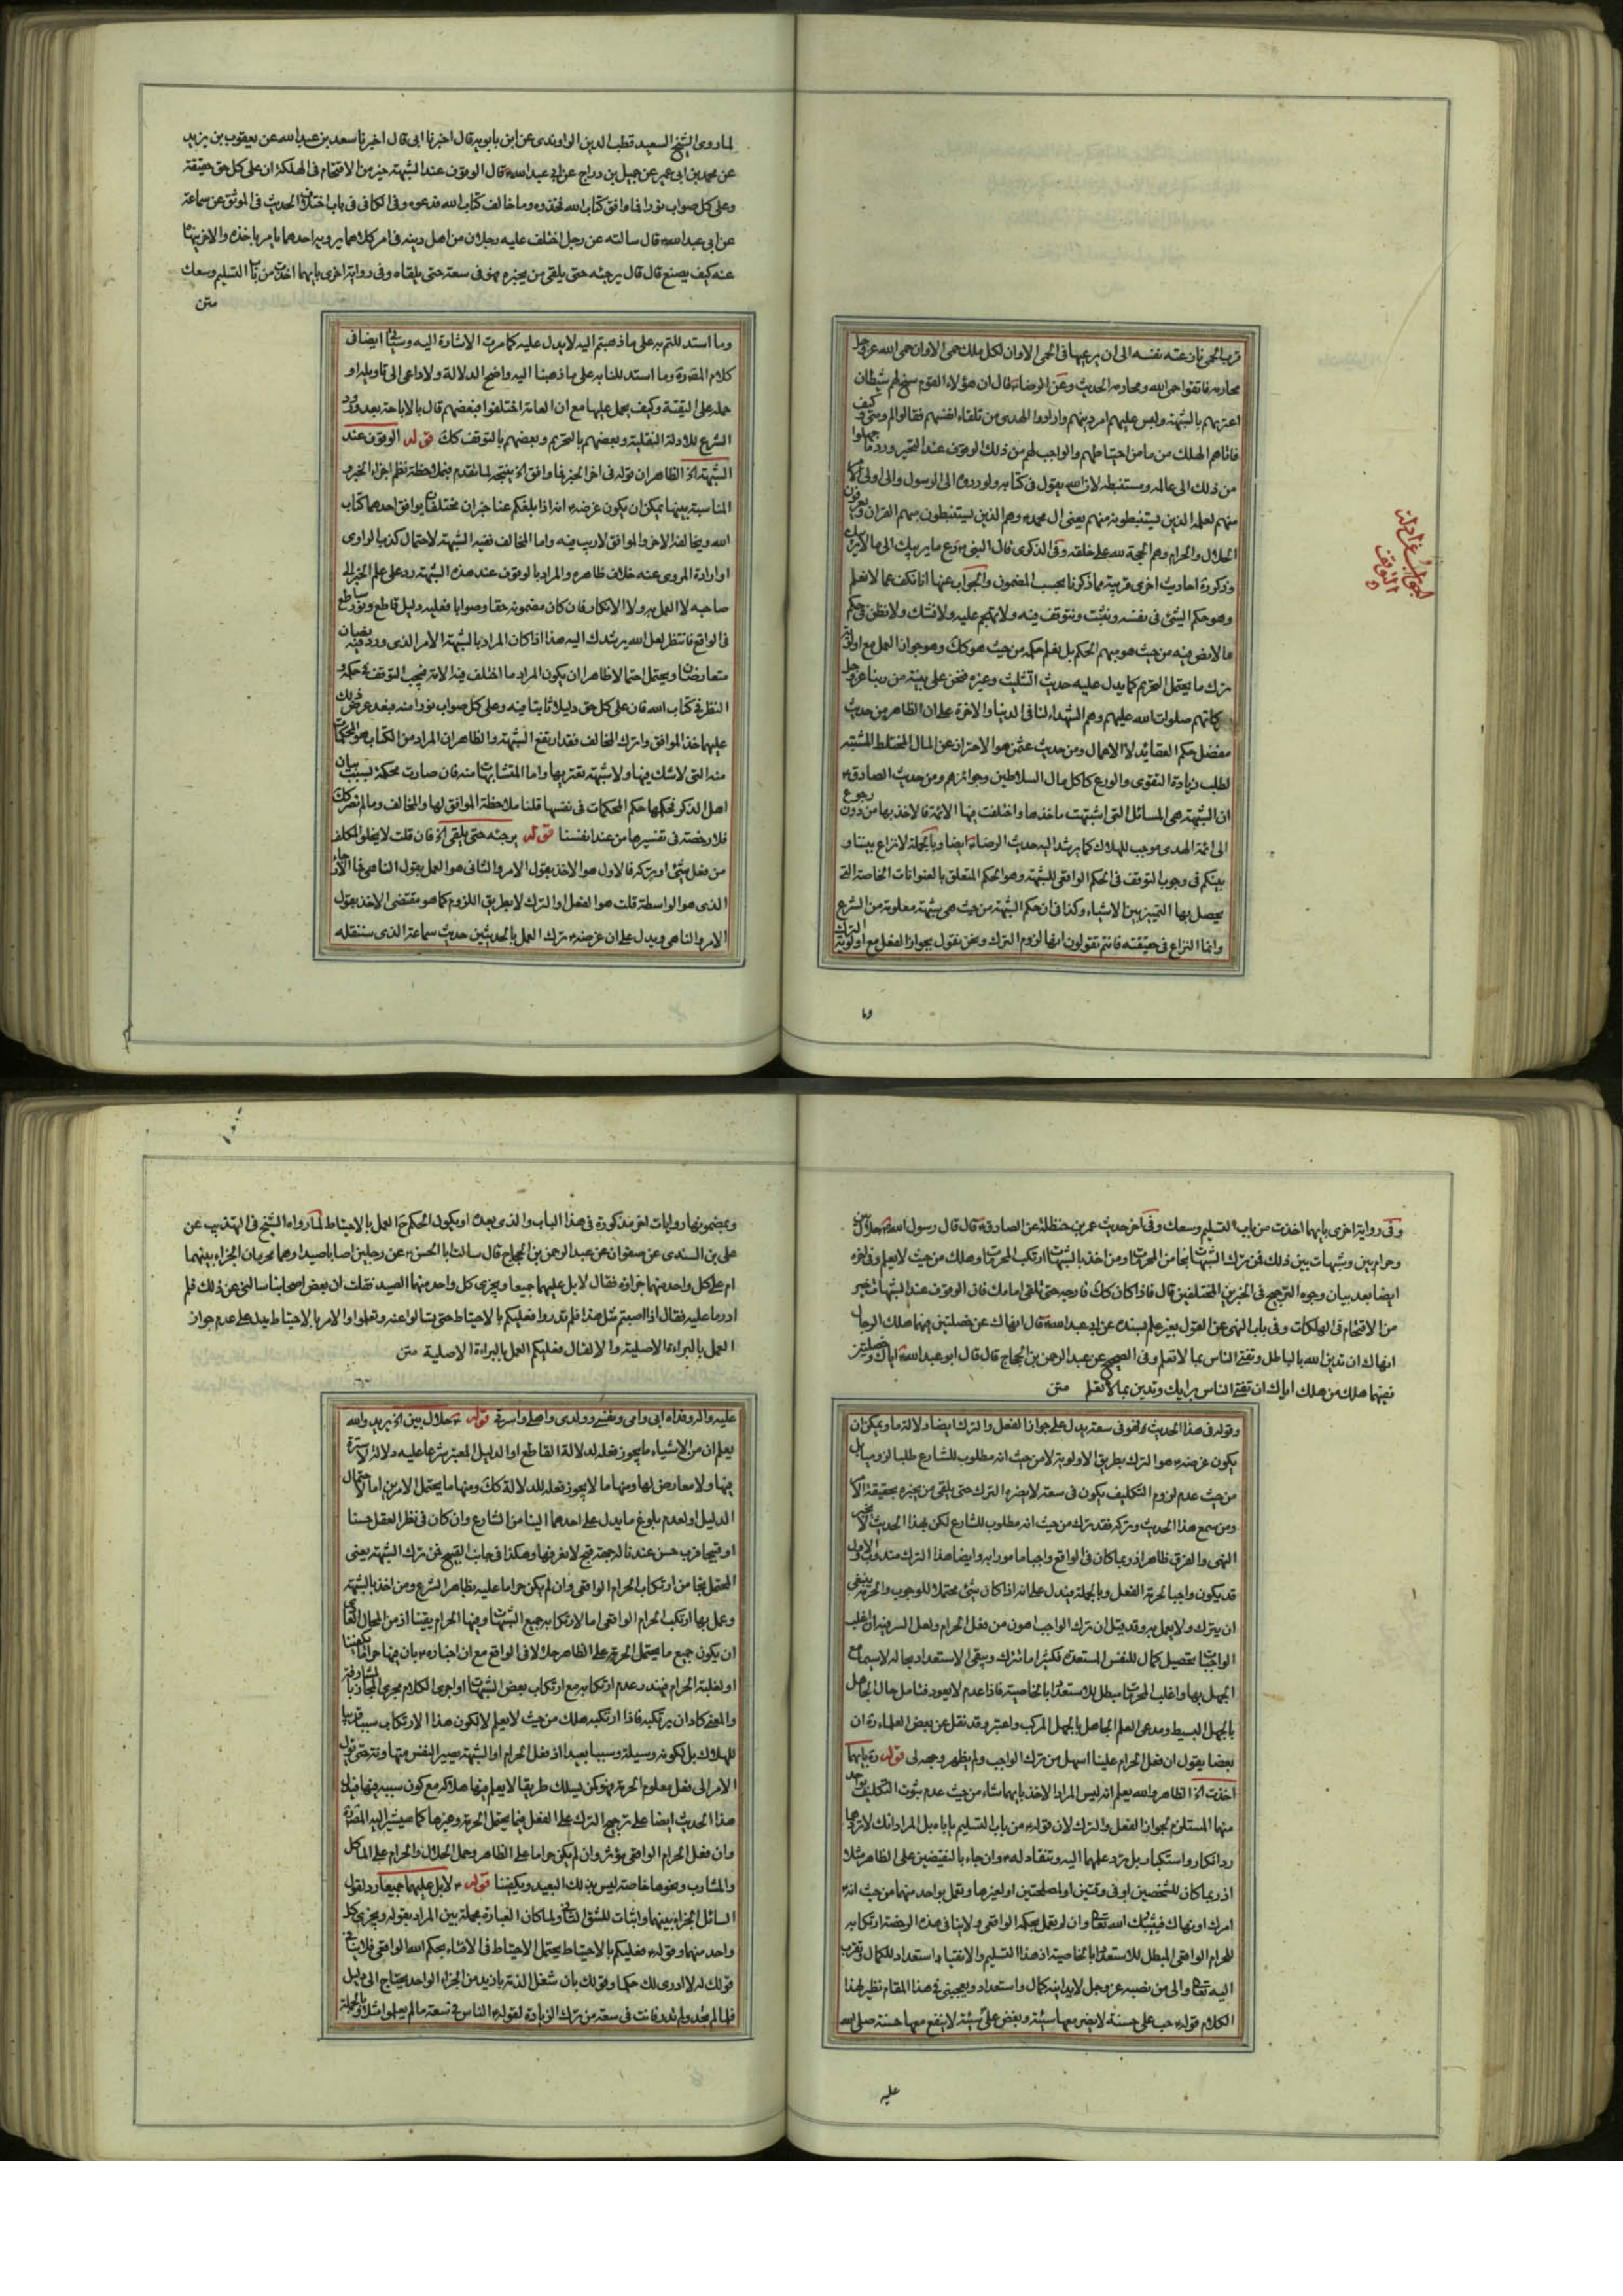 قربا لحمى فان عته نفسه الى ان يرعيها فى الحمى الا وان لكل ملك حمى الا وان حمى الله عز وجل
محارمه فاتقوا حمى الله ومحارمه الحديث وعن الرضاء قال ان هؤلاء القوم سنح لهم شيطان
اعترهم بالشبهة ولبس عليهم امر دينهم وارادوا الهدى من تلقاء انفسهم فقالوا لم ومتى وكيف
فاتاهم الهلك من مامن احتياطهم والواجب لهم من ذلك الوقوف عند التحير ورد ما جهلوا
من ذلك الى عالمه ومستنبطه لان الله يقول فى كتابه ولو ردوه الى الرسول والى اولى الامر
منهم لعلمه الذين يستنبطونه منهم يعنى ال محمد وهم الذين يستنبطون منهم القران ويعرفون
الحلال والحرام وهم الحجة لله على خلقه وفى الذكرى قال النبى دع ما يريبك الى ما لا يريبك
وذكر وردة احاديث اخرى قريبة مما ذكرنا بحسب المضمون والجواب عنها انا نكف عما لا نعلم
وهو حكم الشئ فى نفسه ونثبت ونتوقف فيه ولا نتهجم عليه ولا نشك ولا نظن فى حكم
ما لا نص فيه من حيث هو مبهم الحكم بل نعلم حكمه من حيث هو كك وهو جواز العمل مع اولوية
ترك ما يحتمل التحريم كما يدل عليه حديث التثليث وغيره فنحن على بينة من ربنا عز وجل
وكلماتهم صلوات الله عليهم وهم الشهداء لنا فى الدنيا والاخرة على ان الظاهر من حديث
مفضل حكم العقائد لا الاعمال ومن حديث عثمن هو الاحتراز عن المال المختلط المشتبه
لطلب زيادة التقوى والورع كاكل مال السلاطين وجوائزهم ومن حديث الصادق
ان الشبهة هى المسائل التى اشتبهت ماخذها واختلفت فيها الائمة فالاخذ بها من دون رجوع
الى ائمة الهدى موجب للهلاك كما يرشد اليه حديث الرضاء ايضا وبالجملة لا نزاع بيننا و
بينكم فى وجوب التوقف فى الحكم الواقعى للشبهة وهو الحكم المتعلق بالعنوانات الخاصة التى
يحصل بها التمييز بين الاشياء وكذا فى ان حكم الشبهة من حيث هى شبهة معلومة من الشرع
وانما النزاع فى حقيقته فانتم تقولون انها لزوم الترك ونحن نقول بجواز الفعل مع اولوية الترك
وما
الجواب عن ادلة
التوقف
لما روى الشيخ السعيد قطب الدين الراوندى عن ابن بابويه قال اخبرنا ابى قال اخبرنا سعد بن عبد الله عن يعقوب بن يزيد
عن محمد بن ابى عمير عن جميل بن دراج عن ابى عبد الله قال الوقوف عند الشبهة خير من الاقتحام فى الهلكة ان على كل حق حقيقة
وعلى كل صواب نورا فما وافق كتاب الله فخذوه وما خالف كتاب الله فدعوه وفى الكافى فى باب اختلاف الحديث فى الموثق عن سماعة
عن ابى عبد الله قال سالته عن رجل اختلف عليه رجلان من اهل دينه فى امر كلاهما يرويه احدهما يامر باخذه والاخر ينهاه
عنه كيف يصنع قال قال يرجئه حتى يلقى من يخبره فهو فى سعة حتى يلقاه وفى رواية اخرى بايهما اخذت من باب التسليم وسعك
متن
وما استدللتم به على ما ذهبتم اليه لا يدل عليه كما مرت الاشارة اليه وسياتى ايضا فى
كلام المص ره وما استدللنا به على ما ذهبنا اليه واضح الدلالة ولا داعى الى تاويله او
حمله على التقية وكيف يحمل عليها مع ان العامة اختلفوا فبعضهم قال بالاباحة بعد ورود
الشرع للادلة النقلية وبعضهم بالتحريم وبعضهم بالتوقف كك قوله الوقوف عند
الشبهة الخ الظاهر ان قوله فى اخر الخبر فما وافق الخ نتيجة لما تقدم فبملاحظة نظم اجزاء الخبر و
المناسبة بينها يمكن ان يكون غرضه انه اذا بلغكم عنا خبران مختلفان يوافق احدهما كتاب
الله ويخالفه الاخر والموافق لا ريب فيه واما المخالف ففيه الشبهة لاحتمال كذب الراوى
او ارادة المروى عنه خلاف ظاهره والمراد بالوقوف عند هذه الشبهة رد على علم الخبر الى
صاحبه لا العمل به ولا الانكار فان كان مضمونه حقا وصوابا فعليه دليل قاطع ونور ساطع
فى الواقع فانتظر لعل الله يرشدك اليه هذا اذا كان المراد بالشبهة الامر الذى ورد فيه نصان
متعارضان ويحتمل احتمالا ظاهرا ان يكون المراد ما اختلف فيه الامة فيجب التوقف فى حكمه و
النظر فى كتاب الله فان على كل حق دليلا ثابتا فيه وعلى كل صواب نورا منه فبعد عرض ذلك
عليهما خذ الموافق واترك المخالف فقد ارتفع الشبهة والظاهر ان المراد من الكتاب هو المحكمات
منه التى لا شك فيها ولا شبهة تعتريها واما المتشابهات منه فان صارت محكمة بسبب بيان
اهل الذكر فحكمها حكم المحكمات فى نفسها قلنا ملاحظة الموافق لها والمخالف وما لم تصر كك
فلا رخصة فى تفسيرها من عند انفسنا قوله يرجئه حتى يلقى الخ فان قلت لا يخلو المكلف
من فعل شئ او تركه فالاول هو الاخذ بقول الامر والثانى هو العمل بقول الناهى فما الارجاء
الذى هو الواسطة قلت هو الفعل او الترك لا بطريق اللزوم كما هو مقتضى الاخذ بقول
الامر والناهى ويدل على ان غرضه ترك العمل بالحديثين حديث سماعة الذى سننقله
وفى رواية اخرى بايهما اخذت من باب التسليم وسعك وفى اخر حديث عمر بن حنظلة عن الصادق قال قال رسول الله حلال بين
وحرام بين وشبهات بين ذلك فمن ترك الشبهات نجا من المحرمات ومن اخذ بالشبهات ارتكب المحرمات وهلك من حيث لا يعلم وفى اخره
ايضا بعد بيان وجوه الترجيح فى الخبرين المختلفين قال فاذا كان كك فارجه حتى تلقى امامك فان الوقوف عند الشبهات خير
من الاقتحام فى الهلكات وفى باب النهى عن القول بغير علم بسنده عن ابى عبد الله قال انهاك عن خصلتين فيهما هلك الرجال
انهاك ان تدين الله بالباطل وتفتى الناس بما لا تعلم وفى الصحيح عن عبد الرحمن بن الحجاج قال قال ابو عبد الله اياك وخصلتين
ففيهما هلك من هلك اياك ان تفتى الناس برايك وتدين بما لا تعلم متن
وقوله فى هذا الحديث فهو فى سعة يدل على جواز الفعل والترك ايضا دلالة ما ويمكن ان
يكون غرضه هو الترك بطريق الاولوية لا من حيث انه مطلوب للشارع طلبا لزوميا بل
من حيث عدم لزوم التكليف يكون فى سعة لا يضره الترك حتى يلقى من يخبره بحقيقة الامر
ومن سمع هذا الحديث وتركه فقد ترك من حيث انه مطلوب للشارع لكن بهذا الحديث لا بخبر
النهى والفرق ظاهر اذ ربما كان فى الواقع واجبا مامورا به وايضا هذا الترك مندوب والاول
قد يكون واجبا لحرمة الفعل وبالجملة فيدل على انه اذا كان شئ محتملا للوجوب والحرمة ينبغى
ان يترك ولا يعمل به وقد قيل ان ترك الواجب اهون من فعل الحرام ولعل السر فيه ان اغلب
الواجبات تحصيل كمال للنفس المستعدة فكثيرا ما تترك ويبقى الاستعداد بحاله لا سيما مع
الجهل بها واغلب المحرمات مبطل للاستعداد بالخاصية فاذا عدم لا يعود فتامل حال الجاهل
بالجهل البسيط ومدعى العلم الجاهل بالجهل المركب واعتبر وقد نقل عن بعض العلماء ره ان
بعضا يقول ان فعل الحرام علينا اسهل من ترك الواجب ولم يظهر وجهه لى قوله ره بايهما
اخذت الخ الظاهر والله يعلم انه ليس المراد الاخذ بايهما شاء من حيث عدم ثبوت التكليف بواحد
منها المستلزم لجواز الفعل والترك لان قوله من باب التسليم ياباه بل المراد انك لا تردهما
رد انكار واستكبار بل ترد علمهما اليه وتنقاد له وان جاء بالنقيضين على الظاهر مثلا
اذ ربما كان للشخصين او فى وقتين او لمصلحتين او لغيرها وتعمل بواحد منهما من حيث انه
امرك او نهاك فيثيبك الله تعالى وان لم تعمل بحكمه الواقعى ولا ينافى هذه الرخصة ارتكابه
للحرام الواقعى المبطل للاستعداد بالخاصية اذ هذا التسليم والانقياد استعداد للكمال وتقرب
اليه تعالى والى من نصبه عز وجل لابد اينه كمال واستعداد ويعجبنى فى هذا المقام نظير لهذا
الكلام قوله حب على حسنة لا يضر معها سيئة وبغض على سيئة لا ينفع معها حسنة صلى الله
عليه
وبمضمونها روايات اخر مذكورة فى هذا الباب والذى بعده او يكون الحكم ح العمل بالاحتياط لما رواه الشيخ فى التهذيب عن
على بن السندى عن صفوان عن عبد الرحمن بن الحجاج قال سالت ابا الحسن عن رجلين اصابا صيدا وهما محرمان الجزاء بينهما
ام على كل واحد منهما جزاء فقال لا بل عليهما جميعا ويجزى كل واحد منهما الصيد فقلت ان بعض اصحابنا سالنى عن ذلك فلم
ادر ما عليه فقال اذا اصبتم مثل هذا فلم تدروا فعليكم بالاحتياط حتى تسالوا عنه وتعلموا والامر بالاحتياط يدل على عدم جواز
العمل بالبراءة الاصلية والا لقال فعليكم العمل بالبراءة الاصلية متن
عليه واله وفداه ابى وامى ونفسى وولدى واهلى واسرتى قوله حلال بين الخ يريد والله
يعلم ان من الاشياء ما يجوز فعله لدلالة القاطع او الدليل المعتبر شرعا عليه دلالة لا سترة
فيها ولا معارض لها ومنها ما لا يجوز فعله للدلالة كك ومنها ما يحتمل الامرين اما لاحتمال
الدليل او لعدم بلوغ ما يدل على احدهما الينا من الشارع وان كان فى نظر العقل حسنا
او قبيحا فرب حسن عندنا لدرجة قبح لا نعرفها وهكذا فى جانب القبيح فمن ترك الشبهة يعنى
المحتمل نجا من ارتكاب الحرام الواقعى وان لم يكن حراما عليه بظاهر الشرع ومن اخذ بالشبهة
وعمل بها ارتكب الحرام الواقعى اما لارتكابه جميع الشبهات وفيها الحرام يقينا اذ من المحال العادى
ان يكون جميع ما يحتمل الحرمة على الظاهر حلالا فى الواقع مع ان اخباره بان فيها حراما يكفينا
او لغلبة الحرام فيندر عدم ارتكابه مع ارتكاب بعض الشبهات او اجرى الكلام مجرى المجاز بالمشارفة
والمعنى كاد ان يرتكبه فاذا ارتكبه هلك من حيث لا يعلم لا لكون هذا الارتكاب سببا قريبا
للهلاك بل لكونه وسيلة وسببا بعيدا اذ فعل الحرام او الشبهة يصير النفس منها وتترقى يؤل
الامر الى فعل معلوم الحرمة فهو كمن يسلك طريقا لا يعلم فيها هلاكه مع كون سببه فيها فيدل
هذا الحديث ايضا على ترجيح الترك على الفعل فيما يحتمل الحرمة وغيرها كما سيشير اليه المص ره
وان فعل الحرام الواقعى مؤثر وان لم يكن حراما على الظاهر وحمل الحلال والحرام على الماكل
والمشارب ونحوها خاصة ليس بذلك البعيد ويكفينا قوله لا بل عليهما جميعا رد لقول
السائل الجزاء بينهما واثبات للشق الثانى ولما كان العبارة مجملة بين المراد بقوله ويجزى كل
واحد منهما وقوله فعليكم بالاحتياط يحتمل الاحتياط فى الافتاء بحكم الله الواقعى فلا ينافى
قولك له لا ادرى لك حكما وقولك بان شغل الذمة بازيد من الجزاء الواحد يحتاج الى دليل
فلما لم نجد ولم ندر فانت فى سعة من ترك الزيادة لقوله الناس فى سعة ما لم يعلموا مثلا وبالجملة